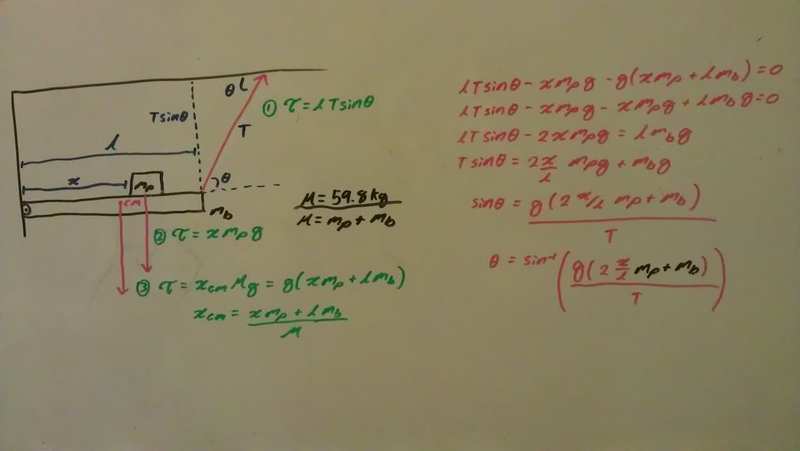 θ L
① τ = lTsinθ
Tsinθ
T
l
θ
x
m_p
cm
m_b
M = 59.8 kg
M = m_p + m_b
② τ = x m_p g
③ τ = x_cm Mg = g(x m_p + l m_b)
x_cm = (x m_p + l m_b) / M
lTsinθ - x m_p g - g(x m_p + l m_b) = 0
lTsinθ - x m_p g - x m_p g + l m_b g = 0
lTsinθ - 2x m_p g = l m_b g
Tsinθ = 2x/l m_p g + m_b g
sinθ = g(2 x/l m_p + m_b) / T
θ = sin⁻¹ (g(2 x/l m_p + m_b) / T)